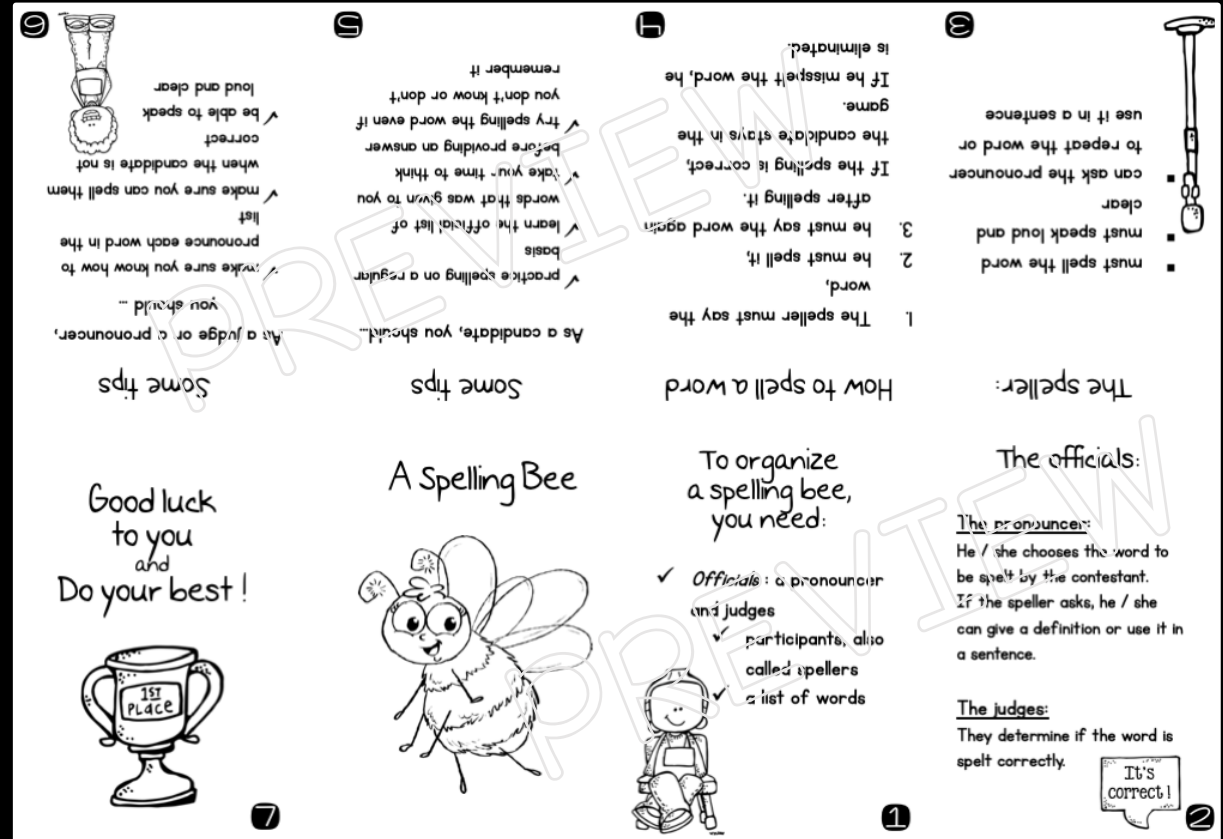 A Spelling Bee
To organize
a spelling bee,
you need:
✓ Officials : a pronouncer
and judges
✓ participants, also
called spellers
✓ a list of words
1
The officials:
The pronouncer:
He / she chooses the word to
be spelt by the contestant.
If the speller asks, he / she
can give a definition or use it in
a sentence.
The judges:
They determine if the word is
spelt correctly.
It's
correct !
2
The speller:
▪ must spell the word
▪ must speak loud and
clear
▪ can ask the pronouncer
to repeat the word or
use it in a sentence
3
How to spell a word
1. The speller must say the
word,
2. he must spell it,
3. he must say the word again
after spelling it.
If the spelling is correct,
the candidate stays in the
game.
If he misspelt the word, he
is eliminated.
4
Some tips
As a candidate, you should...
✓ practice spelling on a regular
basis
✓ learn the official list of
words that was given to you
✓ take your time to think
before providing an answer
✓ try spelling the word even if
you don't know or don't
remember it
5
Some tips
As a judge or a pronouncer,
you should ...
✓ make sure you know how to
pronounce each word in the
list
✓ make sure you can spell them
when the candidate is not
correct
✓ be able to speak
loud and clear
6
Good luck
to you
and
Do your best !
1ST
PLACE
7
PREVIEW
PREVIEW